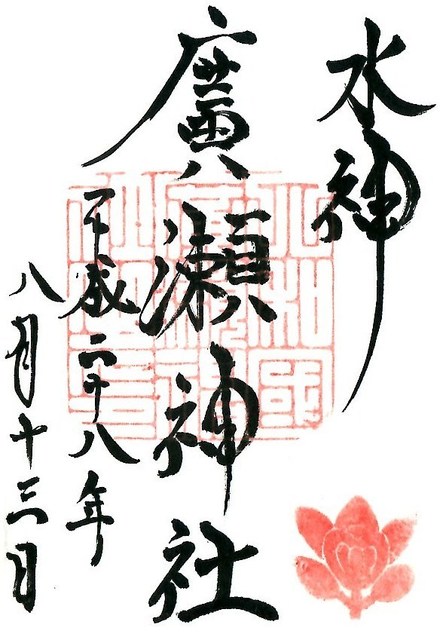 水神
廣瀬神社
平成二十八年
八月十三日